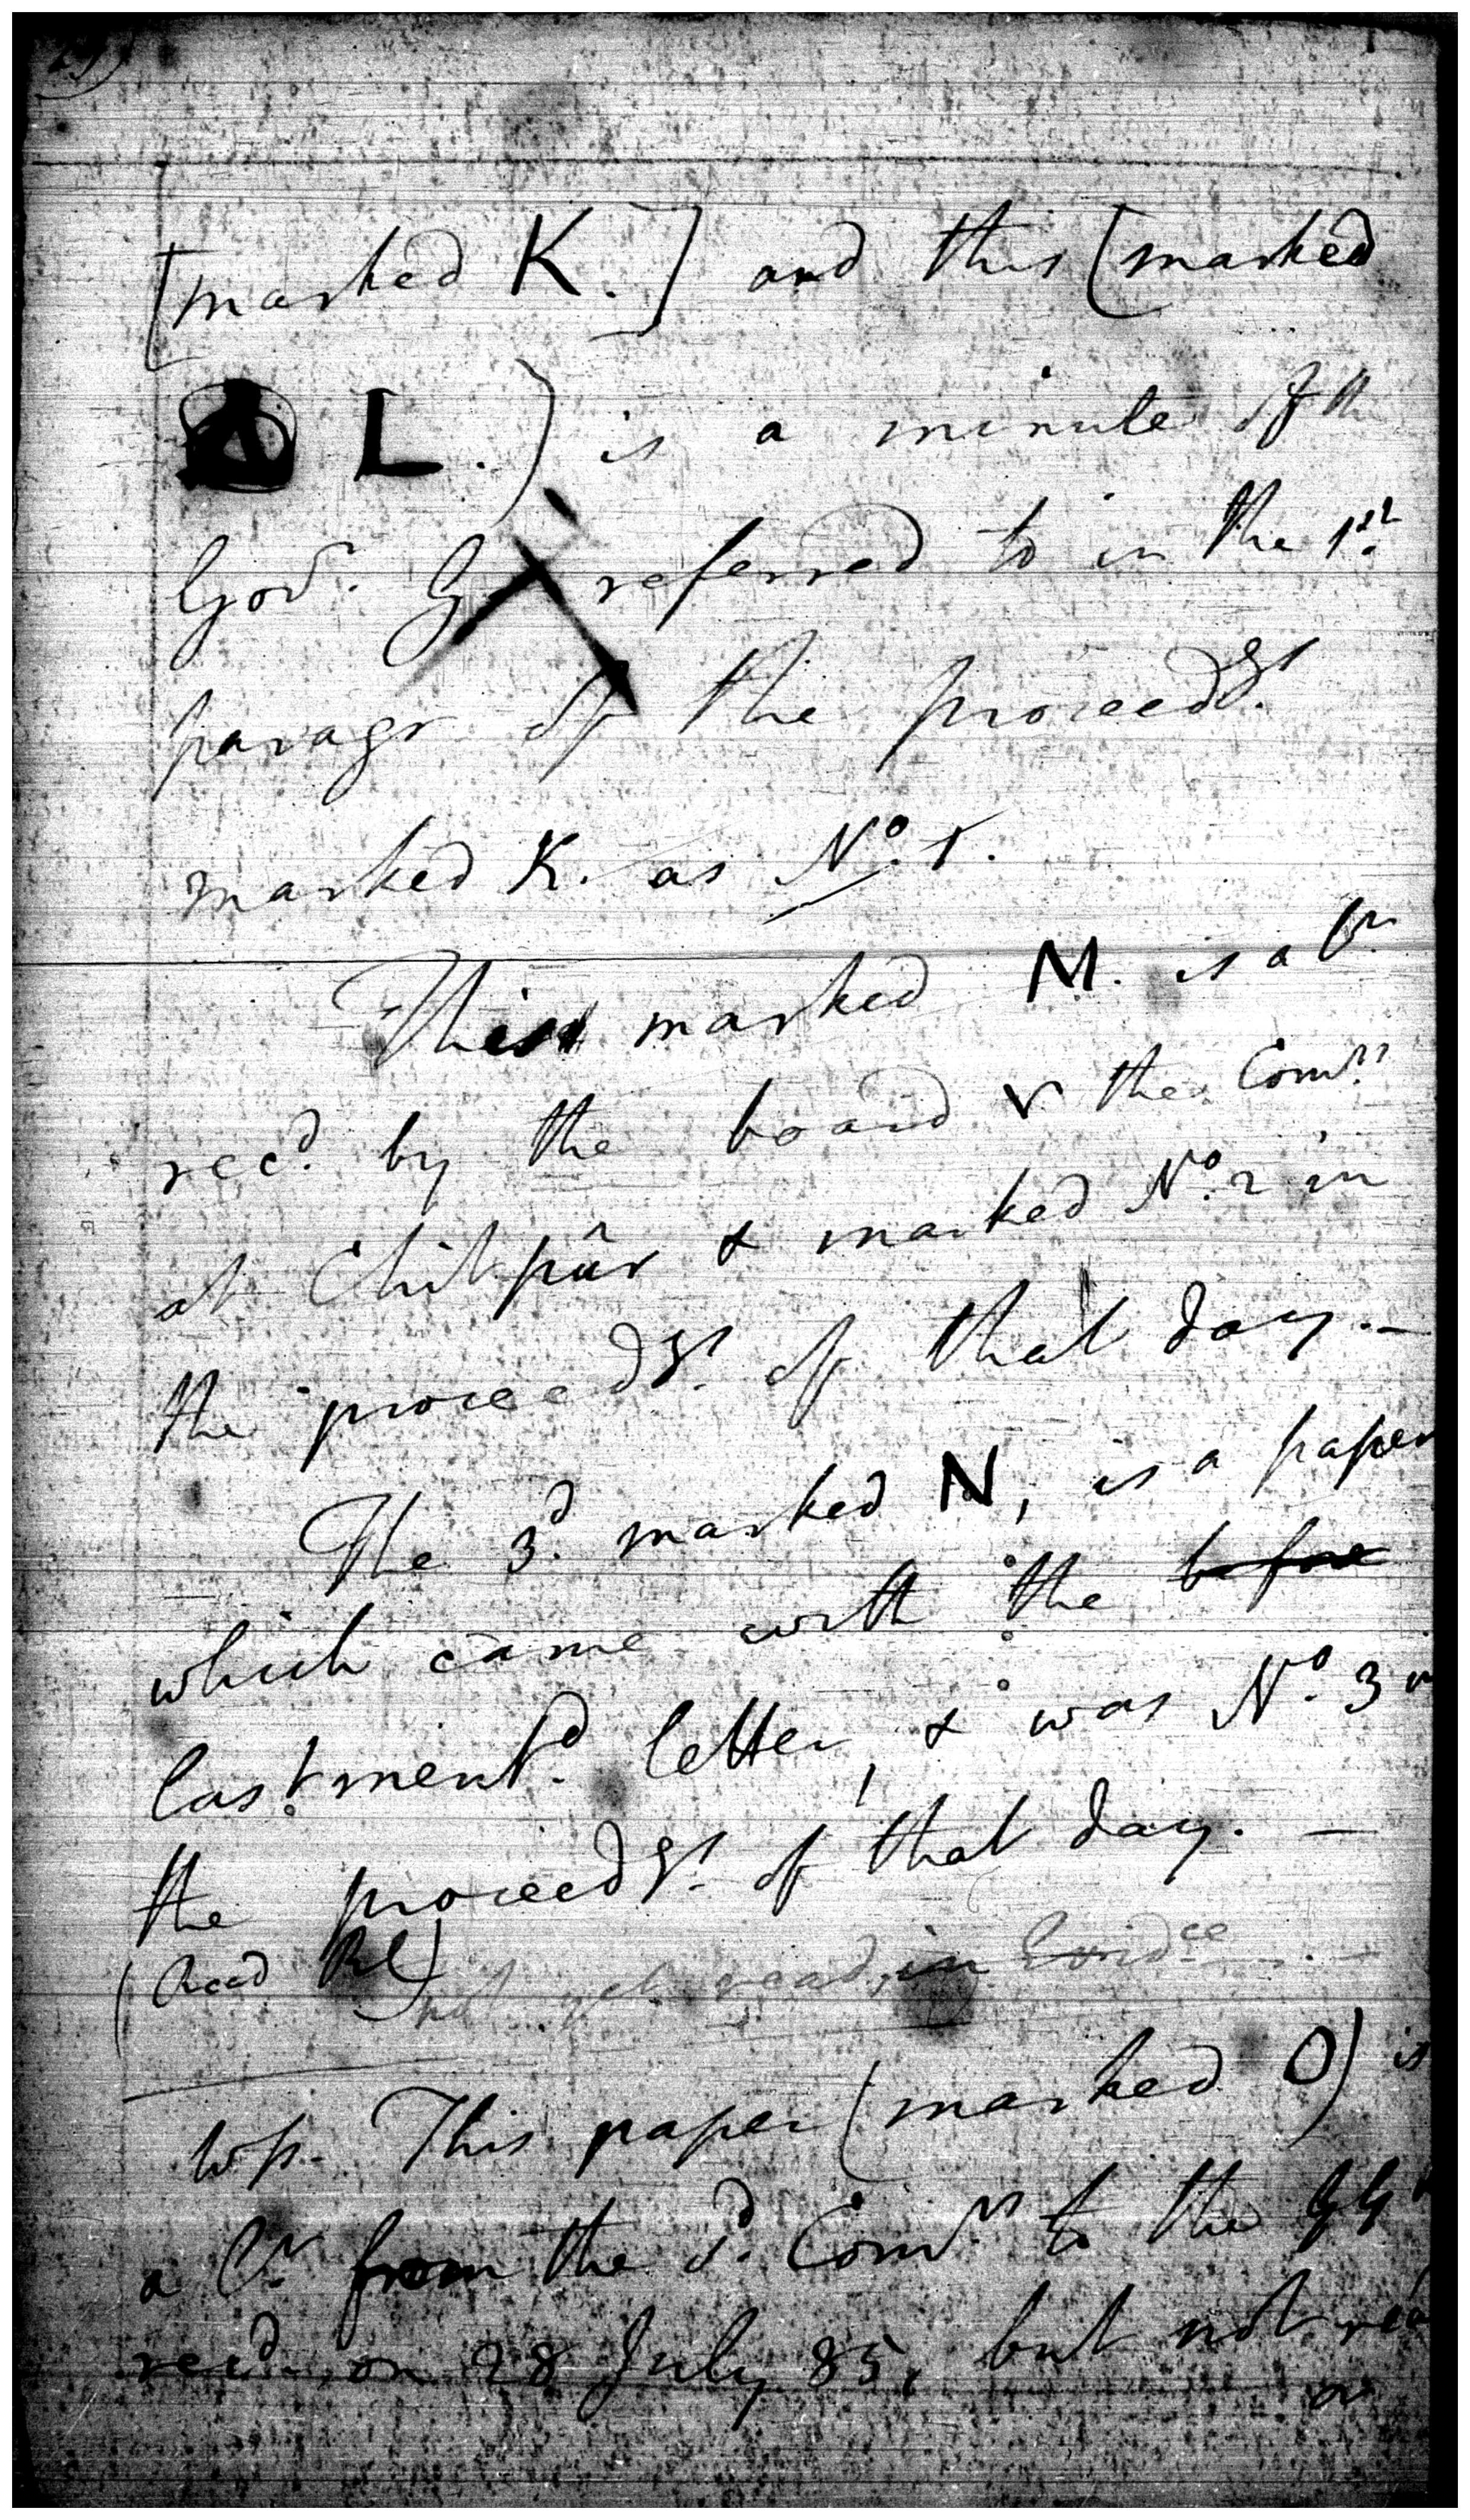 [marked K.] and this [marked
L.) is a minute of the
Govr. G. referred to in the 1st.
paragr of the proceedgs.
marked K. as No. 1.
This marked M. is a lr.
recd. by the board v the Comrs.
at Chitpûr & marked No. 2 in
the proceedgs. of that day. —
The 3d. marked N, is a paper
which came with the before
last mentd. letter, & was No. 3 in
the proceedgs. of that day. —
(Read
not yet read, in Evidce.
Wp. This paper (marked O) is
a lr. from the sd. Comrs. to the GG
recd. on 28 July 85, but not
on